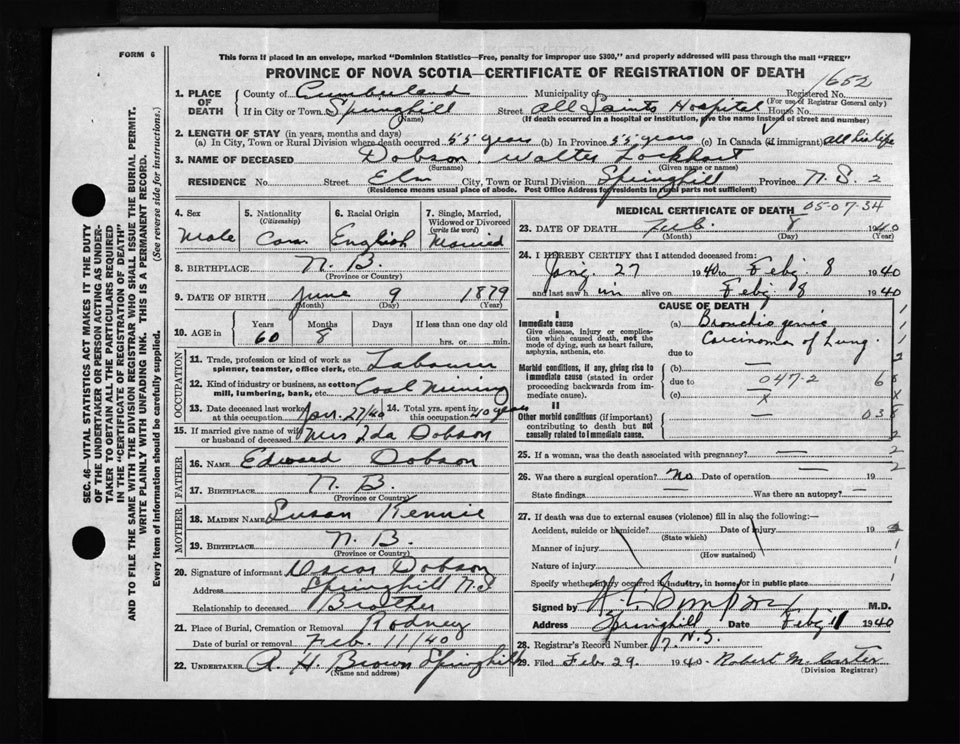 FORM 6
This form if placed in an envelope, marked "Dominion Statistics—Free, penalty for improper use $300," and properly addressed will pass through the mail "FREE"
PROVINCE OF NOVA SCOTIA—CERTIFICATE OF REGISTRATION OF DEATH
1652
1. PLACE OF DEATH
County of Cumberland Municipality of Registered No.
(For use of Registrar General only)
If in City or Town Springhill Street All Saints Hospital House No.
(Name) (If death occurred in a hospital or institution, give the name instead of street and number)
2. LENGTH OF STAY (in years, months and days)
(a) In City, Town or Rural Division where death occurred 55 years (b) In Province 55 years (c) In Canada (if immigrant) all his life
3. NAME OF DECEASED Dobson Walter Lockhart
(Surname) (Given name or names)
RESIDENCE No. Street Elm City, Town or Rural Division Springhill Province N.S. 2
(Residence means usual place of abode. Post Office Address for residents in rural parts not sufficient)
SEC. 46—VITAL STATISTICS ACT MAKES IT THE DUTY
OF THE UNDERTAKER OR PERSON ACTING AS UNDER-
TAKER TO OBTAIN ALL THE PARTICULARS REQUIRED
IN THE "CERTIFICATE OF REGISTRATION OF DEATH"
AND TO FILE THE SAME WITH THE DIVISION REGISTRAR WHO SHALL ISSUE THE BURIAL PERMIT.
WRITE PLAINLY WITH UNFADING INK. THIS IS A PERMANENT RECORD.
Every item of information should be carefully supplied. (See reverse side for instructions.)
4. Sex Male
5. Nationality (Citizenship) Can.
6. Racial Origin English
7. Single, Married, Widowed or Divorced (write the word) Married
8. BIRTHPLACE N. B.
(Province or Country)
9. DATE OF BIRTH June 9 1879
(Month) (Day) (Year)
10. AGE in Years 60 Months 8 Days If less than one day old hrs. or min.
OCCUPATION
11. Trade, profession or kind of work as spinner, teamster, office clerk, etc. Labourer
12. Kind of industry or business, as cotton mill, lumbering, bank, etc. Coal Mining
13. Date deceased last worked at this occupation 27/40
14. Total yrs. spent in this occupation 40 years
15. If married give name of wife or husband of deceased Mrs Ida Dobson
FATHER
16. NAME Edward Dobson
17. BIRTHPLACE N. B.
(Province or Country)
MOTHER
18. MAIDEN NAME Susan Rennie
19. BIRTHPLACE N. B.
(Province or Country)
20. Signature of informant Oscar Dobson
Address Springhill N.S
Relationship to deceased Brother
21. Place of Burial, Cremation or Removal Rodney
Date of burial or removal Feb. 11/40
22. UNDERTAKER A. H. Brown Springhill
(Name and address)
MEDICAL CERTIFICATE OF DEATH 05-07-34
23. DATE OF DEATH Feb. 8 1940
(Month) (Day) (Year)
24. I HEREBY CERTIFY that I attended deceased from:
Jany 27 1940 to Feby 8 1940
and last saw h im alive on Feby 8 1940
CAUSE OF DEATH
I
Immediate cause
Give disease, injury or complication which caused death, not the mode of dying, such as heart failure, asphyxia, asthenia, etc.
(a) Bronchiogenic
Carcinoma of Lung.
due to
Morbid conditions, if any, giving rise to immediate cause (stated in order proceeding backwards from immediate cause).
(b) —
due to 047-2 68
(c) x
II
Other morbid conditions (if important) contributing to death but not causally related to immediate cause.
— 038
25. If a woman, was the death associated with pregnancy? —
26. Was there a surgical operation? no Date of operation — 19
State findings — Was there an autopsy? —
27. If death was due to external causes (violence) fill in also the following:—
Accident, suicide or homicide? Date of injury 19
(State which)
Manner of injury
(How sustained)
Nature of injury
Specify whether injury occurred in industry, in home, or in public place
Signed by M.D.
Address Springhill Date Feby 11 1940
N.S.
28. Registrar's Record Number 7
29. Filed Feb. 29 1940 Robert M. Carter
(Division Registrar)